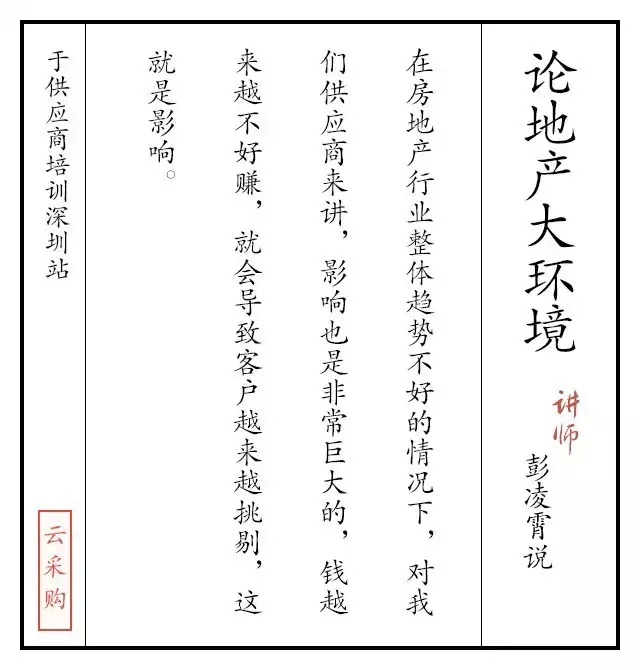 论地产大环境
讲师
彭凌霄说
在房地产行业整体趋势不好的情况下，对我
们供应商来讲，影响也是非常巨大的，钱越
来越不好赚，就会导致客户越来越挑剔，这
就是影响。
于供应商培训深圳站
云采购